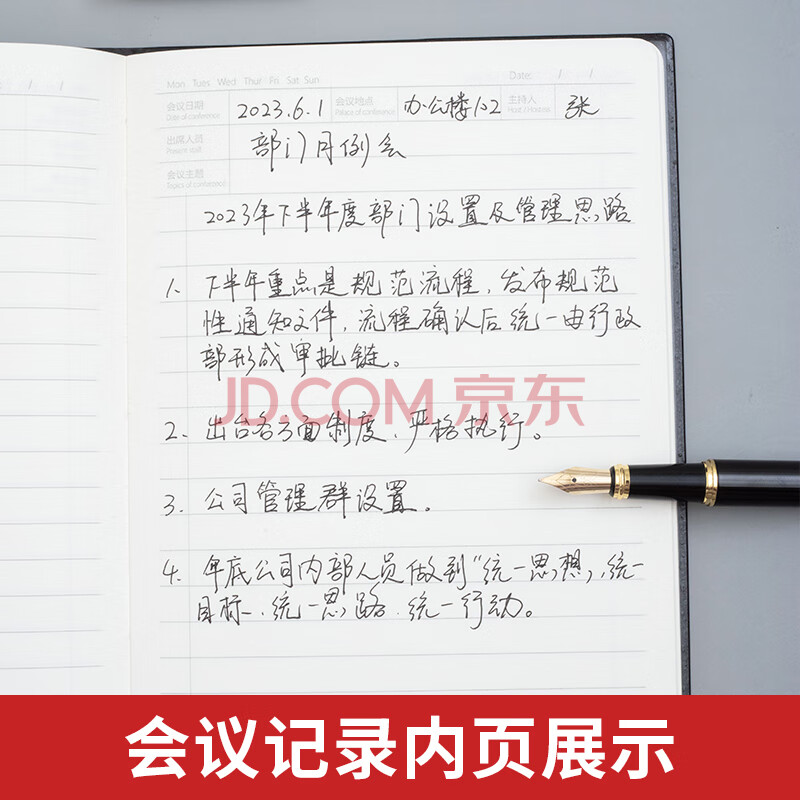 Mon Tues Wed Thur Fri Sat Sun Date: / /
会议日期 2023.6.1 会议地点 办公楼102 主持人 张
Date of conference Palace of conference Host / hostess
出席人员 部门月例会
Present staff
会议主题
Topics of conference
2023年下半年度部门设置及管理思路
1. 下半年重点是规范流程,发布规范
性通知文件,流程确认后统一由行政
部形成审批链。
JD.COM 京东
2. 出台各方面制度、严格执行。
3. 公司管理群设置。
4. 年底公司内部人员做到“统一思想,统一
目标、统一思路、统一行动。
会议记录内页展示